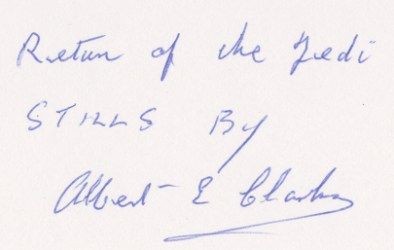 Return of the Jedi
STILLS By
Albert E Clarke